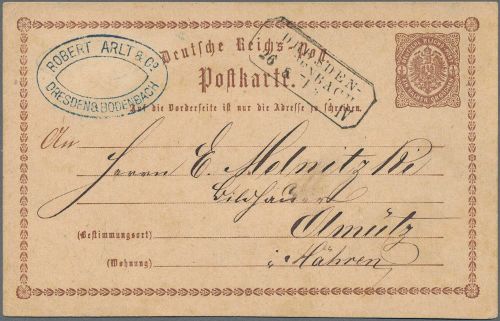 ROBERT ARLT & Co.
DRESDEN & BODENBACH
Deutsche Reichs-Post
Postkarte.
DRESDEN-
BODENBACH
26
IV
Auf die Vorderseite ist nur die Adresse zu schreiben.
An
Herrn E. Melnitzki
Bildhauer
Olmütz
(Bestimmungsort)
i. Mähren
(Wohnung)